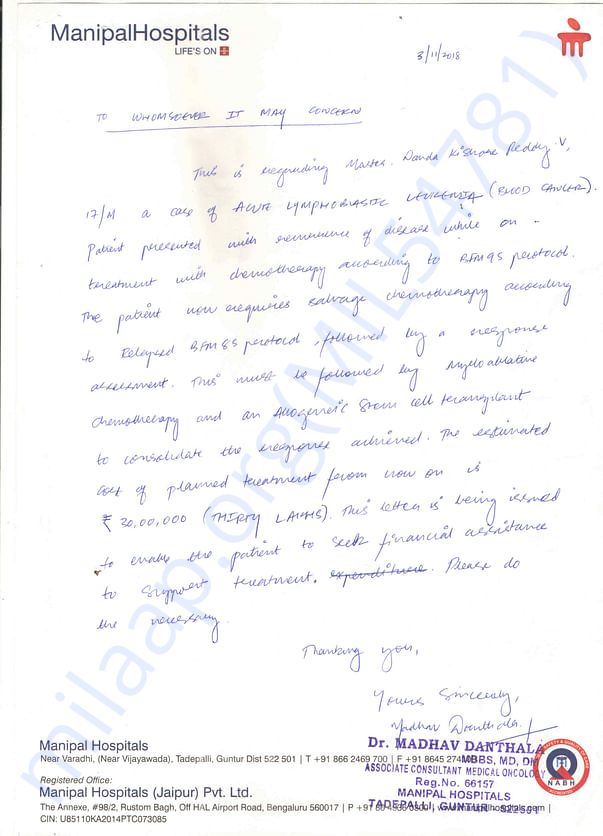 ManipalHospitals
LIFE'S ON
3/11/2018
TO WHOMSOEVER IT MAY CONCERN
This is regarding Master. Danda Kishore Reddy. V,
17/M a case of ACUTE LYMPHOBLASTIC LEUKEMIA (BLOOD CANCER).
Patient presented with recurrence of disease while on -
treatment with chemotherapy according to BFM 95 protocol.
The patient now requires salvage chemotherapy according
to Relapsed BFM protocol, followed by a response
assessment. This must be followed by Myeloablative
chemotherapy and an Allogeneic Stem cell transplant
to consolidate the response achieved. The estimated
cost of planned treatment from now on is
₹ 30,00,000 (THIRTY LAKHS). This letter is being issued
to enable the patient to seek financial assistance
to support treatment. expenditure. Please do
the necessary.
Thanking you,
Yours Sincerely,
Madhav Danthala
Dr. MADHAV DANTHALA
MBBS, MD, DM
ASSOCIATE CONSULTANT MEDICAL ONCOLOGY
Reg.No. 66157
MANIPAL HOSPITALS
TADEPALLI, GUNTUR - 522501
Manipal Hospitals
Near Varadhi, (Near Vijayawada), Tadepalli, Guntur Dist 522 501 | T +91 866 2469 700 | F +91 8645 274
Registered Office:
Manipal Hospitals (Jaipur) Pvt. Ltd.
The Annexe, #98/2, Rustom Bagh, Off HAL Airport Road, Bengaluru 560017 | P +91 80
CIN: U85110KA2014PTC073085
NABH
milaap.org(MIL54781)